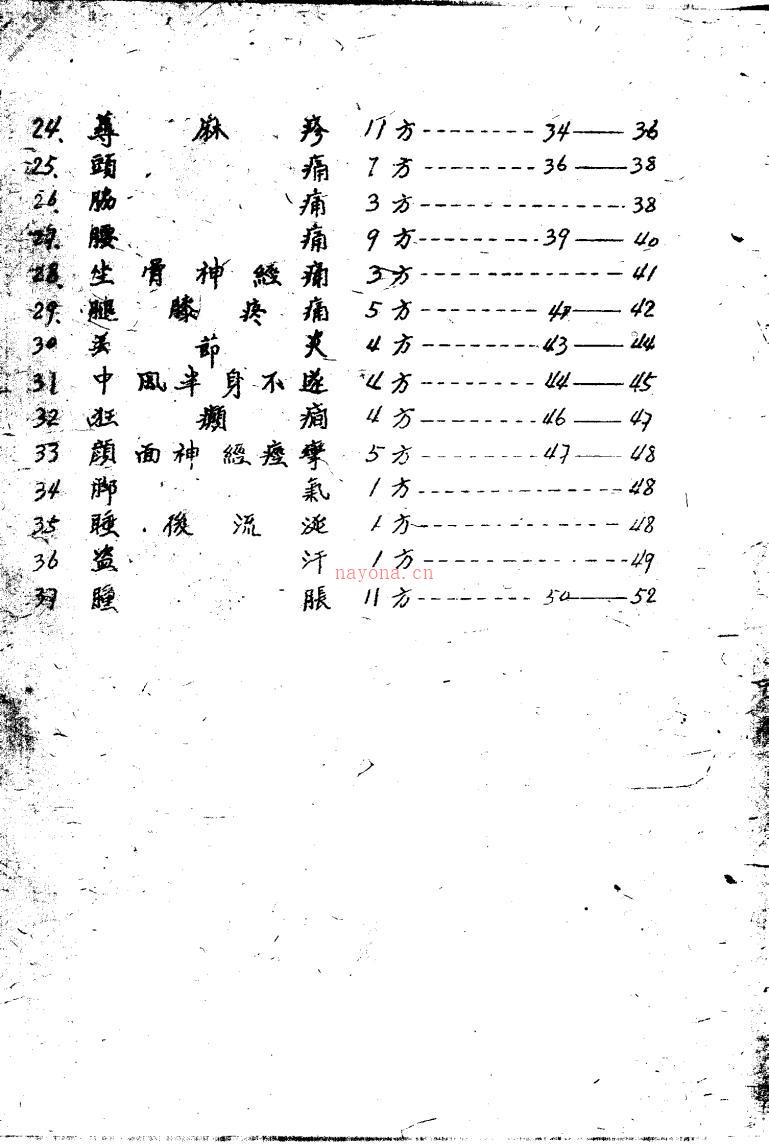 24. 蕁麻疹 11方--------34——36
25. 頭痛 7方--------36——38
26. 脇痛 3方--------------38
27. 腰痛 9方--------39——40
28. 坐骨神經痛 3方--------------41
29. 腿膝疼痛 5方--------——42
30 関節炎 4方--------43——44
31 中風半身不遂 4方--------44——45
32 狂癲癎 4方--------46——47
33 顔面神經痙攣 5方--------47——48
34 脚氣 1方--------------48
35 睡後流涎 1方--------------48
36 盗汗 1方--------------49
nayona.cn
37 腫脹 11方--------50——52